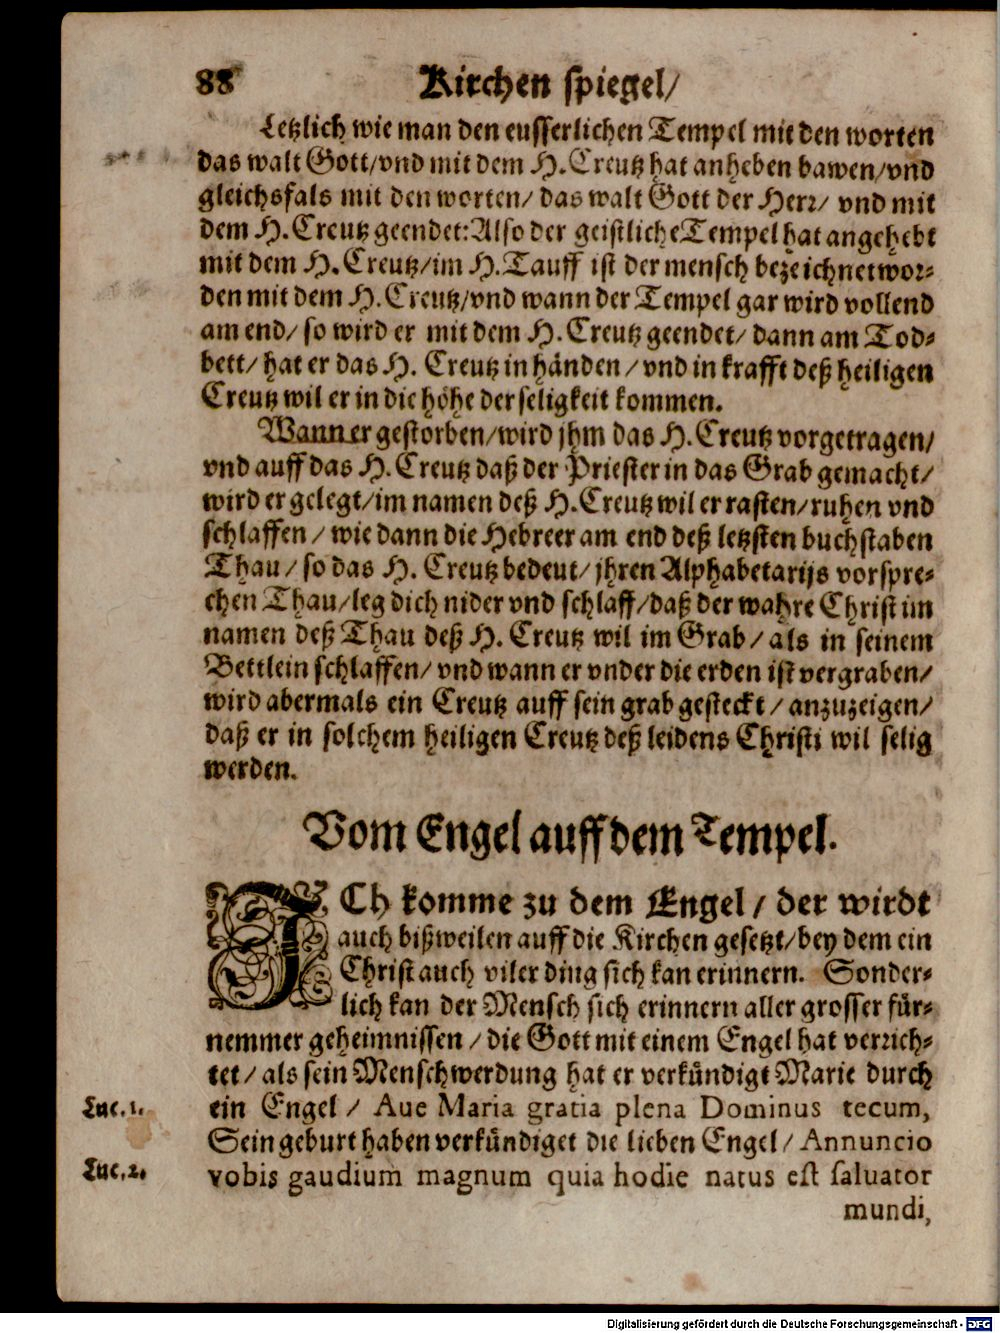 88 Kirchen spiegel/
Letzlich wie man den eusserlichen Tempel mit den worten
das walt Gott/vnd mit dem H. Creutz hat anheben bawen/vnd
gleichsfals mit den worten/ das walt Gott der Herr/ vnd mit
dem H. Creutz geendet: Also der geistliche Tempel hat angehebt
mit dem H. Creutz/im H. Tauff ist der mensch bezeichnet wor-
den mit dem H. Creutz/vnd wann der Tempel gar wird vollend
am end/ so wird er mit dem H. Creutz geendet/ dann am Tod-
bett/ hat er das H. Creutz in händen/ vnd in krafft deß heiligen
Creutz wil er in die höhe der seligkeit kommen.
Wann er gestorben/wird jhm das H. Creutz vorgetragen/
vnd auff das H. Creutz daß der Priester in das Grab gemacht/
wird er gelegt/im namen deß H. Creutz wil er rasten/ruhen vnd
schlaffen/ wie dann die Hebreer am end deß letzten buchstaben
Thau/ so das H. Creutz bedeut/ jhren Alphabetarijs vorspre-
chen Thau/leg dich nider vnd schlaff/daß der wahre Christ im
namen deß Thau deß H. Creutz wil im Grab/ als in seinem
Bettlein schlaffen/ vnd wann er vnder die erden ist vergraben/
wird abermals ein Creutz auff sein grab gesteckt/ anzuzeigen/
daß er in solchem heiligen Creutz deß leidens Christi wil selig
werden.
Vom Engel auff dem Tempel.
ICh komme zu dem Engel/ der wirdt
auch bißweilen auff die Kirchen gesetzt/bey dem ein
Christ auch viler ding sich kan erinnern. Sonder-
lich kan der Mensch sich erinnern aller grosser für-
nemmer geheimnissen/ die Gott mit einem Engel hat verrich-
tet/ als sein Menschwerdung hat er verkündigt Marie durch
Luc. 1. ein Engel/ Aue Maria gratia plena Dominus tecum,
Sein geburt haben verkündiget die lieben Engel/ Annuncio
Luc. 2. vobis gaudium magnum quia hodie natus est saluator
mundi,
Digitalisierung gefördert durch die Deutsche Forschungsgemeinschaft - DFG